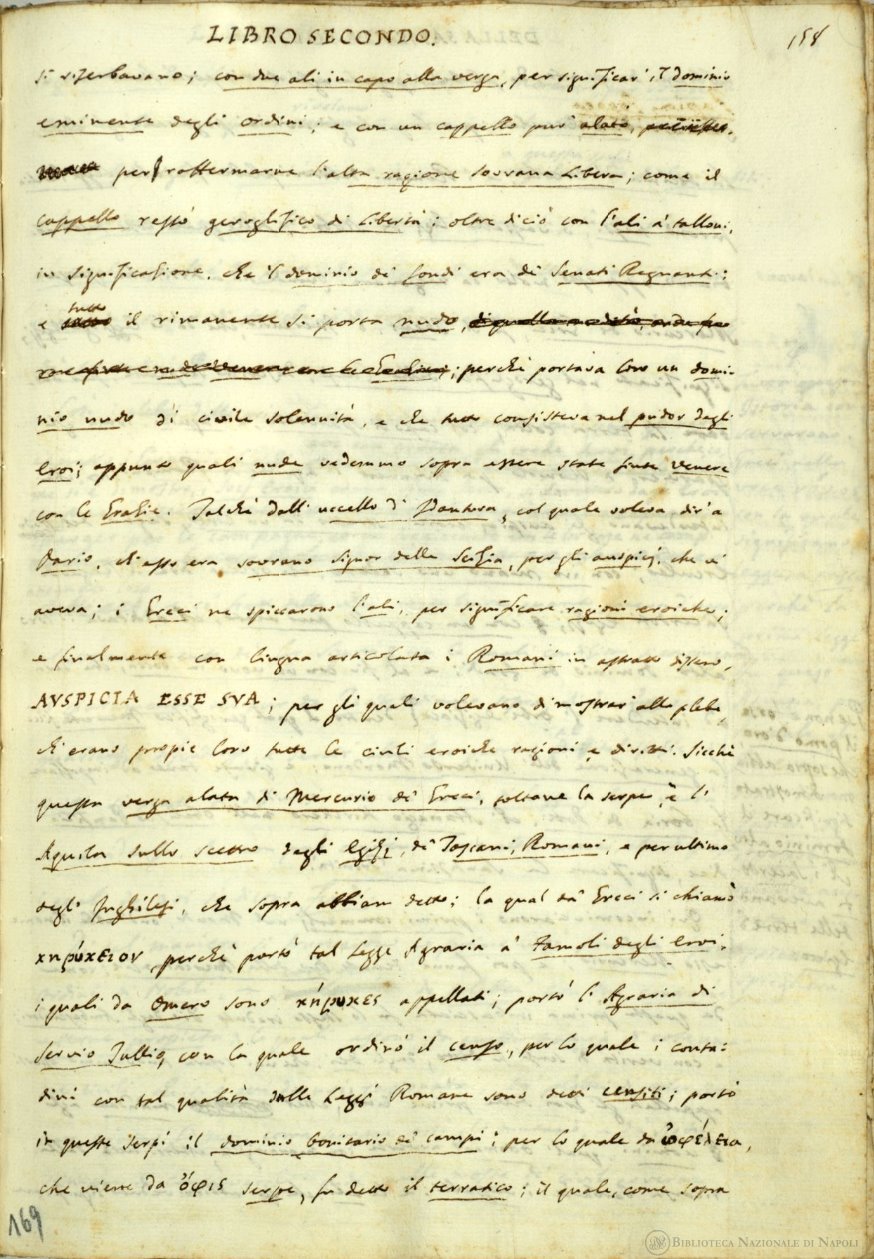 LIBRO SECONDO.
158
si riserbavano; con due ali in capo alla verga, per significar' il dominio
eminente degli ordini; e con un cappello pur' alato,
per raffermarne l'alta ragione sovrana libera; come il
cappello restò geroglifico di libertà; oltre di ciò con l'ali a' talloni,
in significazione, che 'l dominio de' fondi era de' Senati Regnanti;
e tutto il rimanente si porta nudo,
; perchè portava loro un domi-
nio nudo di civile solennità, e che tutto consisteva nel pudor degli
Eroi; appunto quali nude vedemmo sopra essere state finte Venere
con le Grazie. Talchè dall'uccello d'Idantura, col quale voleva dir' a
Dario, ch'esso era sovrano Signor della Scizia, per gli auspicj, che vi
aveva; i Greci ne spiccarono l'ali, per significare ragioni eroiche;
e finalmente con lingua articolata i Romani in astratto dissero,
AVSPICIA ESSE SVA; per gli quali volevano dimostrar' alla plebe,
ch'erano propie loro tutte le civili eroiche ragioni, e diritti. Sicchè
questa verga alata di Mercurio de' Greci, toltane la serpe, è l'
Aquila sullo scettro degli Egizj, de' Toscani, Romani, e per ultimo
degl' Inghilesi, che sopra abbiam detto; la qual da' Greci si chiamò
κηρύκειον, perchè portò tal Legge Agraria a' famoli degli Eroi,
i quali da Omero sono κήρυκες appellati; portò l'Agraria di
Servio Tullio, con la quale ordinò il censo, per lo quale i conta-
dini con tal qualità dalle Leggi Romane sono detti censiti; portò
in queste serpi il dominio bonitario de' campi; per lo quale da ὠφέλεια,
che viene da ὄφις serpe, fu detto il terratico; il quale, come sopra
169
BIBLIOTECA NAZIONALE DI NAPOLI